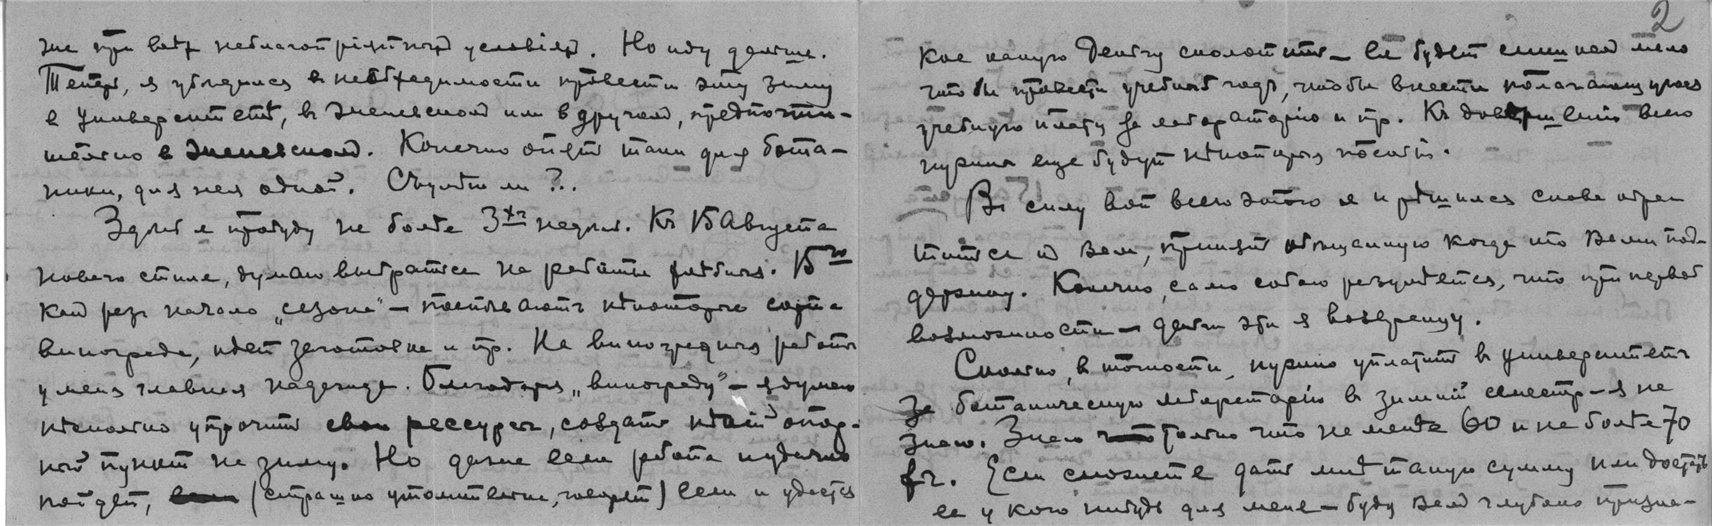 же при всѣх неблагопріятных условіях. Но иду дальше.
Теперь, я убедился в необходимости провести эту зиму
в Университетѣ, в женевском или в другом, предпочти-
тельно в женевском. Конечно опять таки для бота-
ники, для нея одной. Сбудется ли?..
Здѣсь я пробуду не болѣе 3хъ недѣль. Къ 15 Августа
новаго стиля, думаю выбраться на работы . 15го
как разъ начало „сезона" — поспѣваютъ нѣкоторые сорта
винограда, идет заготовка и пр. На виноградныя работы
у меня главная надежда. Благодаря „винограду" — я думаю
нѣсколько упрочить свои рессурсы, создать нѣкій опор-
ный пункт на зиму. Но даже если работа удачно
пойдет, (страшно утомительно, говорят) если и удастся
2
кое какую деньгу сколотить — ее будет слишком мало
чтобы провести учебный годъ, чтобы внести полагающуюся
учебную плату за лабораторію и пр. Къ довершенію всего
нужны еще будут нѣкоторыя пособія.
Въ силу вот всего этого я и рѣшился снова обра-
титься к Вам, принять обѣщанную когда то Вами под-
держку. Конечно, само собою разумѣется, что при первой
возможности — деньги эти я возвращу.
Сколько, в точности, нужно уплатить в университетъ
за ботаническую лабораторію в зимній семестр — я не
знаю. Знаю только что не менѣе 60 и не болѣе 70
fr. Если сможете дать мнѣ такую сумму или достать
ее у кого нибудь для меня — буду Вам глубоко призна-